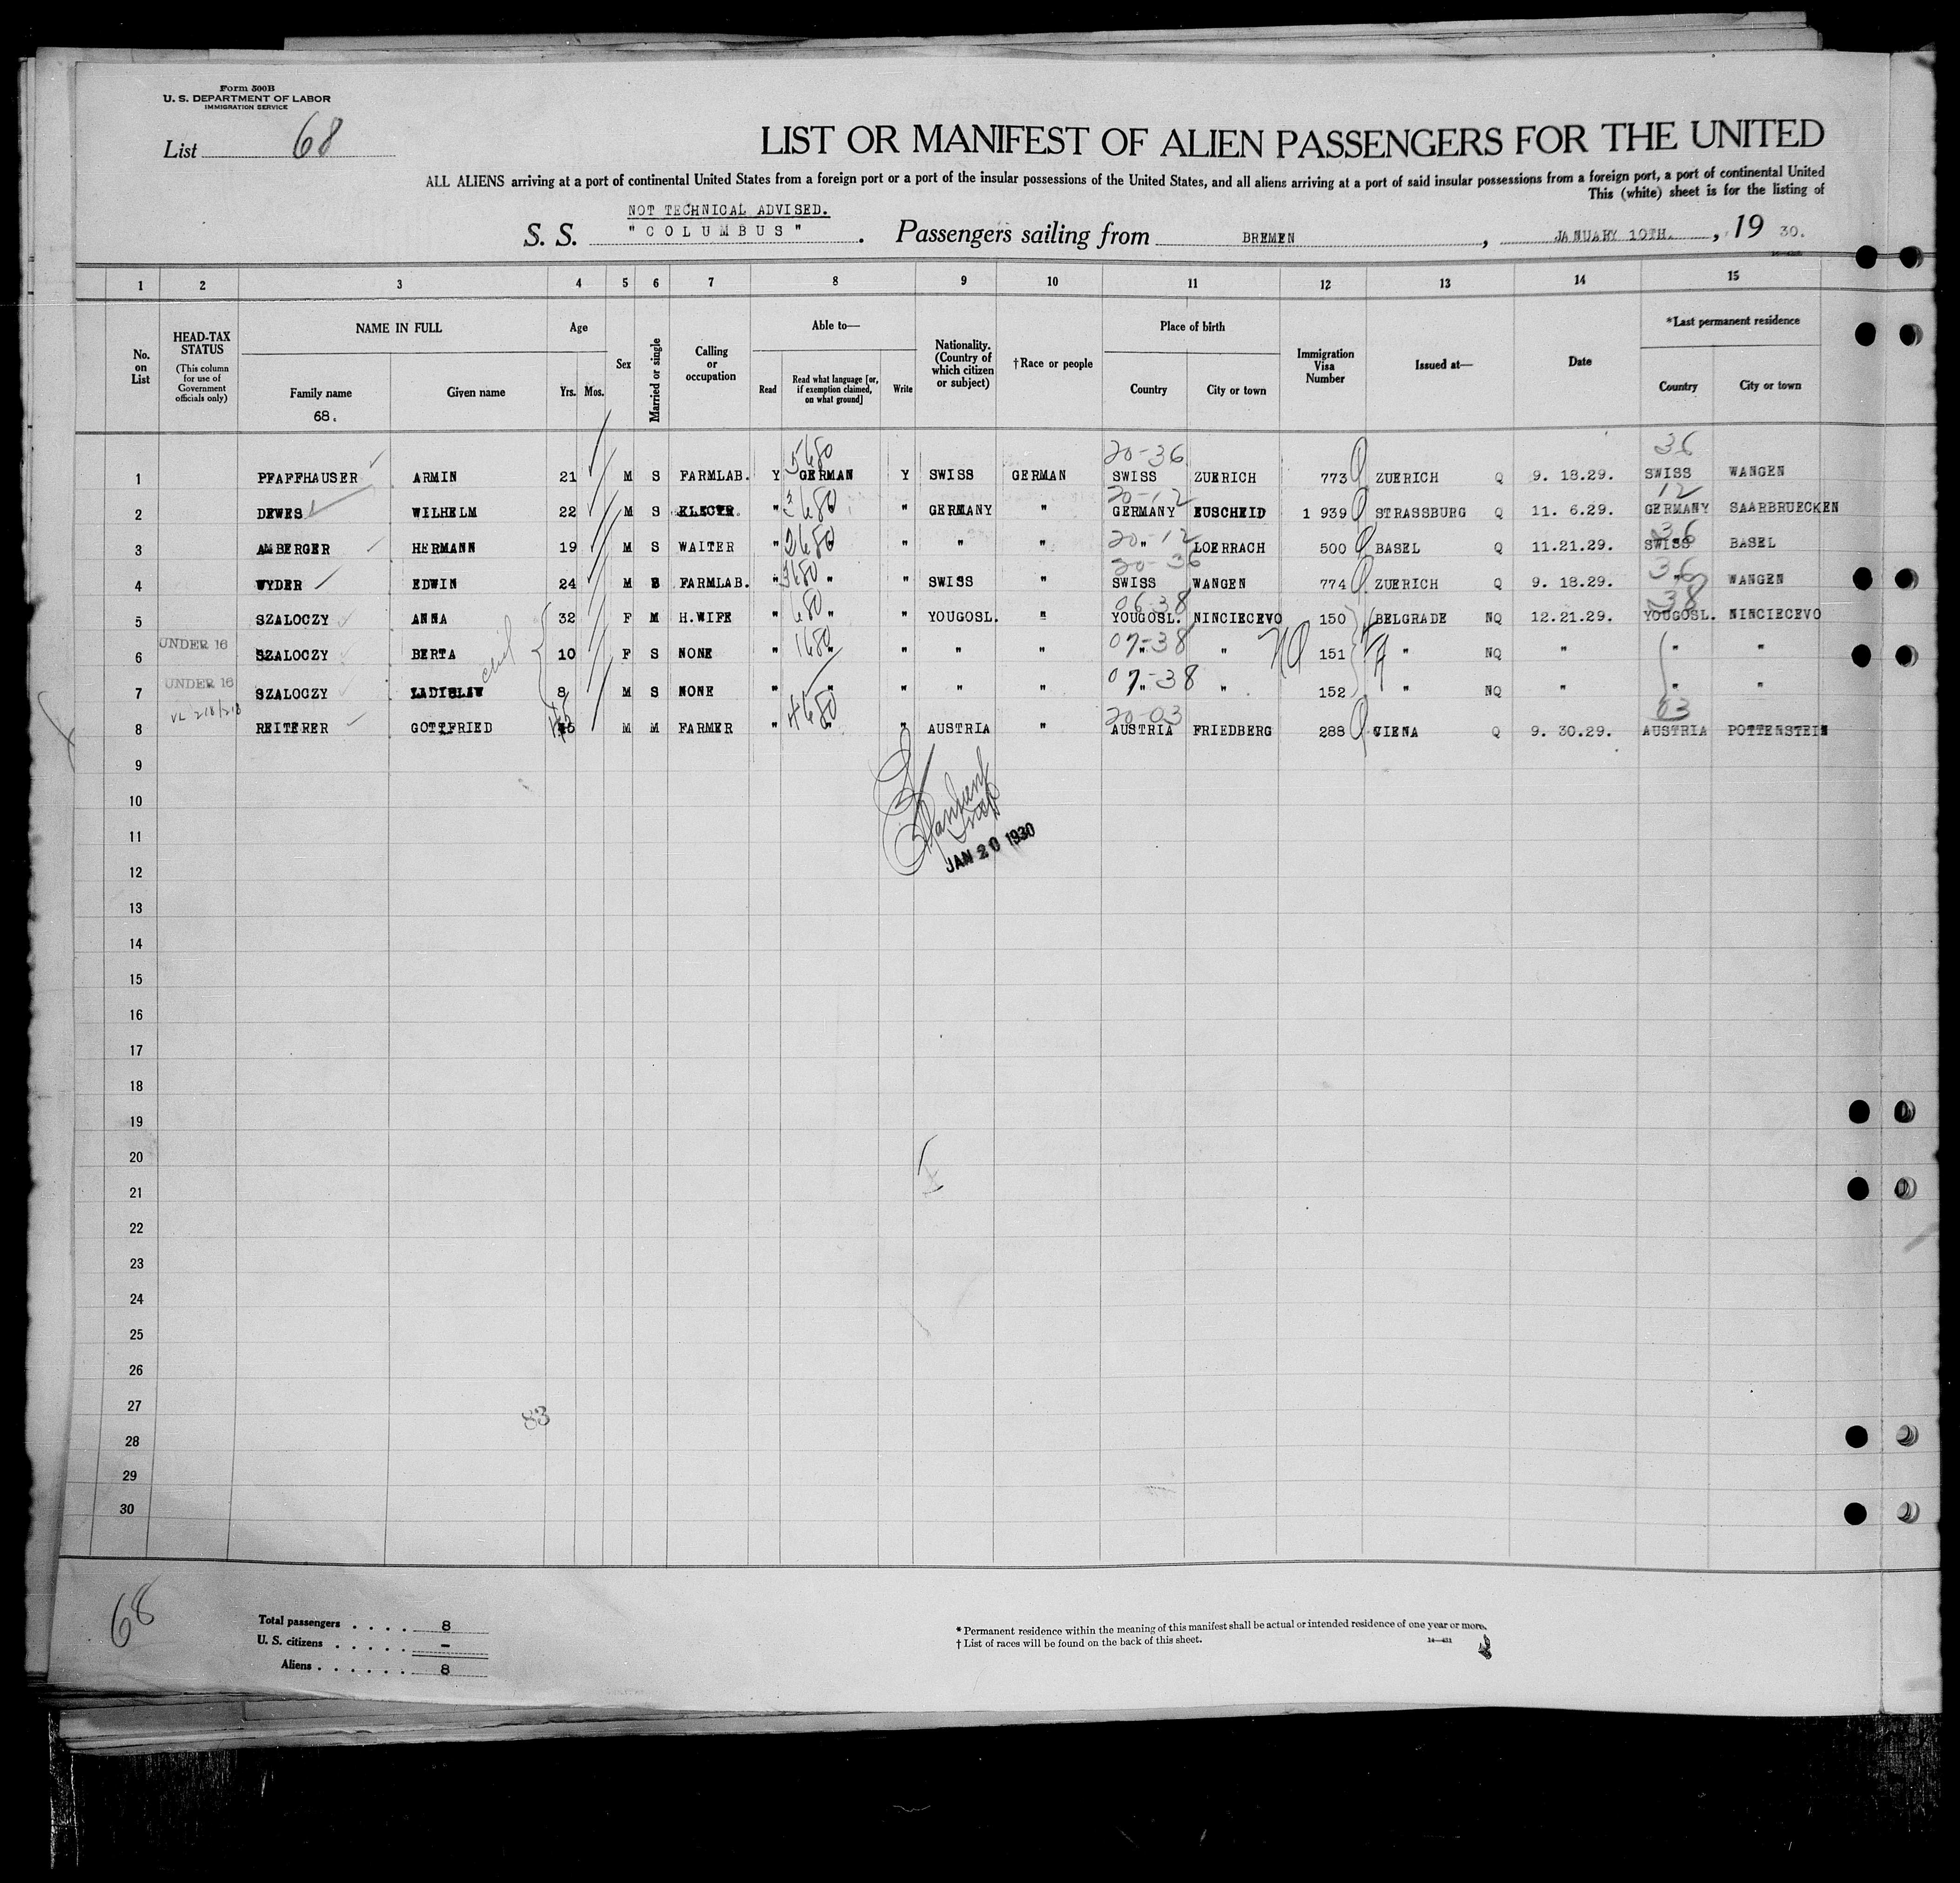 Form 500B
U. S. DEPARTMENT OF LABOR
IMMIGRATION SERVICE
List 68
LIST OR MANIFEST OF ALIEN PASSENGERS FOR THE UNITED
ALL ALIENS arriving at a port of continental United States from a foreign port or a port of the insular possessions of the United States, and all aliens arriving at a port of said insular possessions from a foreign port, a port of continental United
This (white) sheet is for the listing of
NOT TECHNICAL ADVISED.
S. S. "COLUMBUS". Passengers sailing from BREMEN, JANUARY 10TH., 19 30.
1 2 3 4 5 6 7 8 9 10 11 12 13 14 15
No. on List
HEAD-TAX STATUS (This column for use of Government officials only)
NAME IN FULL
Family name
Given name
68.
Age
Yrs. Mos.
Sex
Married or single
Calling or occupation
Able to—
Read
Read what language [or, if exemption claimed, on what ground]
Write
Nationality. (Country of which citizen or subject)
†Race or people
Place of birth
Country
City or town
Immigration Visa Number
Issued at—
Date
*Last permanent residence
Country
City or town
5680 20-36 36
1 PFAFFHAUSER ARMIN 21 M S FARMLAB. Y GERMAN Y SWISS GERMAN SWISS ZUERICH 773 ZUERICH Q 9. 18.29. SWISS WANGEN
20-12 12
2 DEWES WILHELM 22 M S ELECTR. " 3680 " GERMANY " GERMANY EUSCHEID 1 939 STRASSBURG Q 11. 6.29. GERMANY SAARBRUECKEN
20-12 36
3 AMBERGER HERMANN 19 M S WAITER " 2680 " " " " LOERRACH 500 BASEL Q 11.21.29. SWISS BASEL
20-36 36
4 WYDER EDWIN 24 M S FARMLAB. " 3680 " " SWISS " SWISS WANGEN 774 ZUERICH Q 9. 18.29. " WANGEN
06-38 38
5 SZALOCZY ANNA 32 F M H.WIFE " 680 " " YOUGOSL. " YOUGOSL. NINCIECEVO 150 BELGRADE NQ 12.21.29. YOUGOSL. NINCIECEVO
UNDER 16
6 SZALOCZY BERTA 10 F S NONE " 1680 " " " " 07-38 " " 151 " NQ " " "
UNDER 16
7 SZALOCZY LADISLAW 8 M S NONE " " " " " 07-38 " " 152 " NQ " " "
4680 20-03 03
8 REITERER GOTTFRIED 45 M M FARMER " " " AUSTRIA " AUSTRIA FRIEDBERG 288 VIENA Q 9. 30.29. AUSTRIA POTTENSTEIN
9
10
11
JAN 20 1930
12
13
14
15
16
17
18
19
20
21
22
23
24
25
26
27
83
28
29
30
68
Total passengers . . . . 8
U. S. citizens . . . . . –
Aliens . . . . . . 8
* Permanent residence within the meaning of this manifest shall be actual or intended residence of one year or more.
† List of races will be found on the back of this sheet.